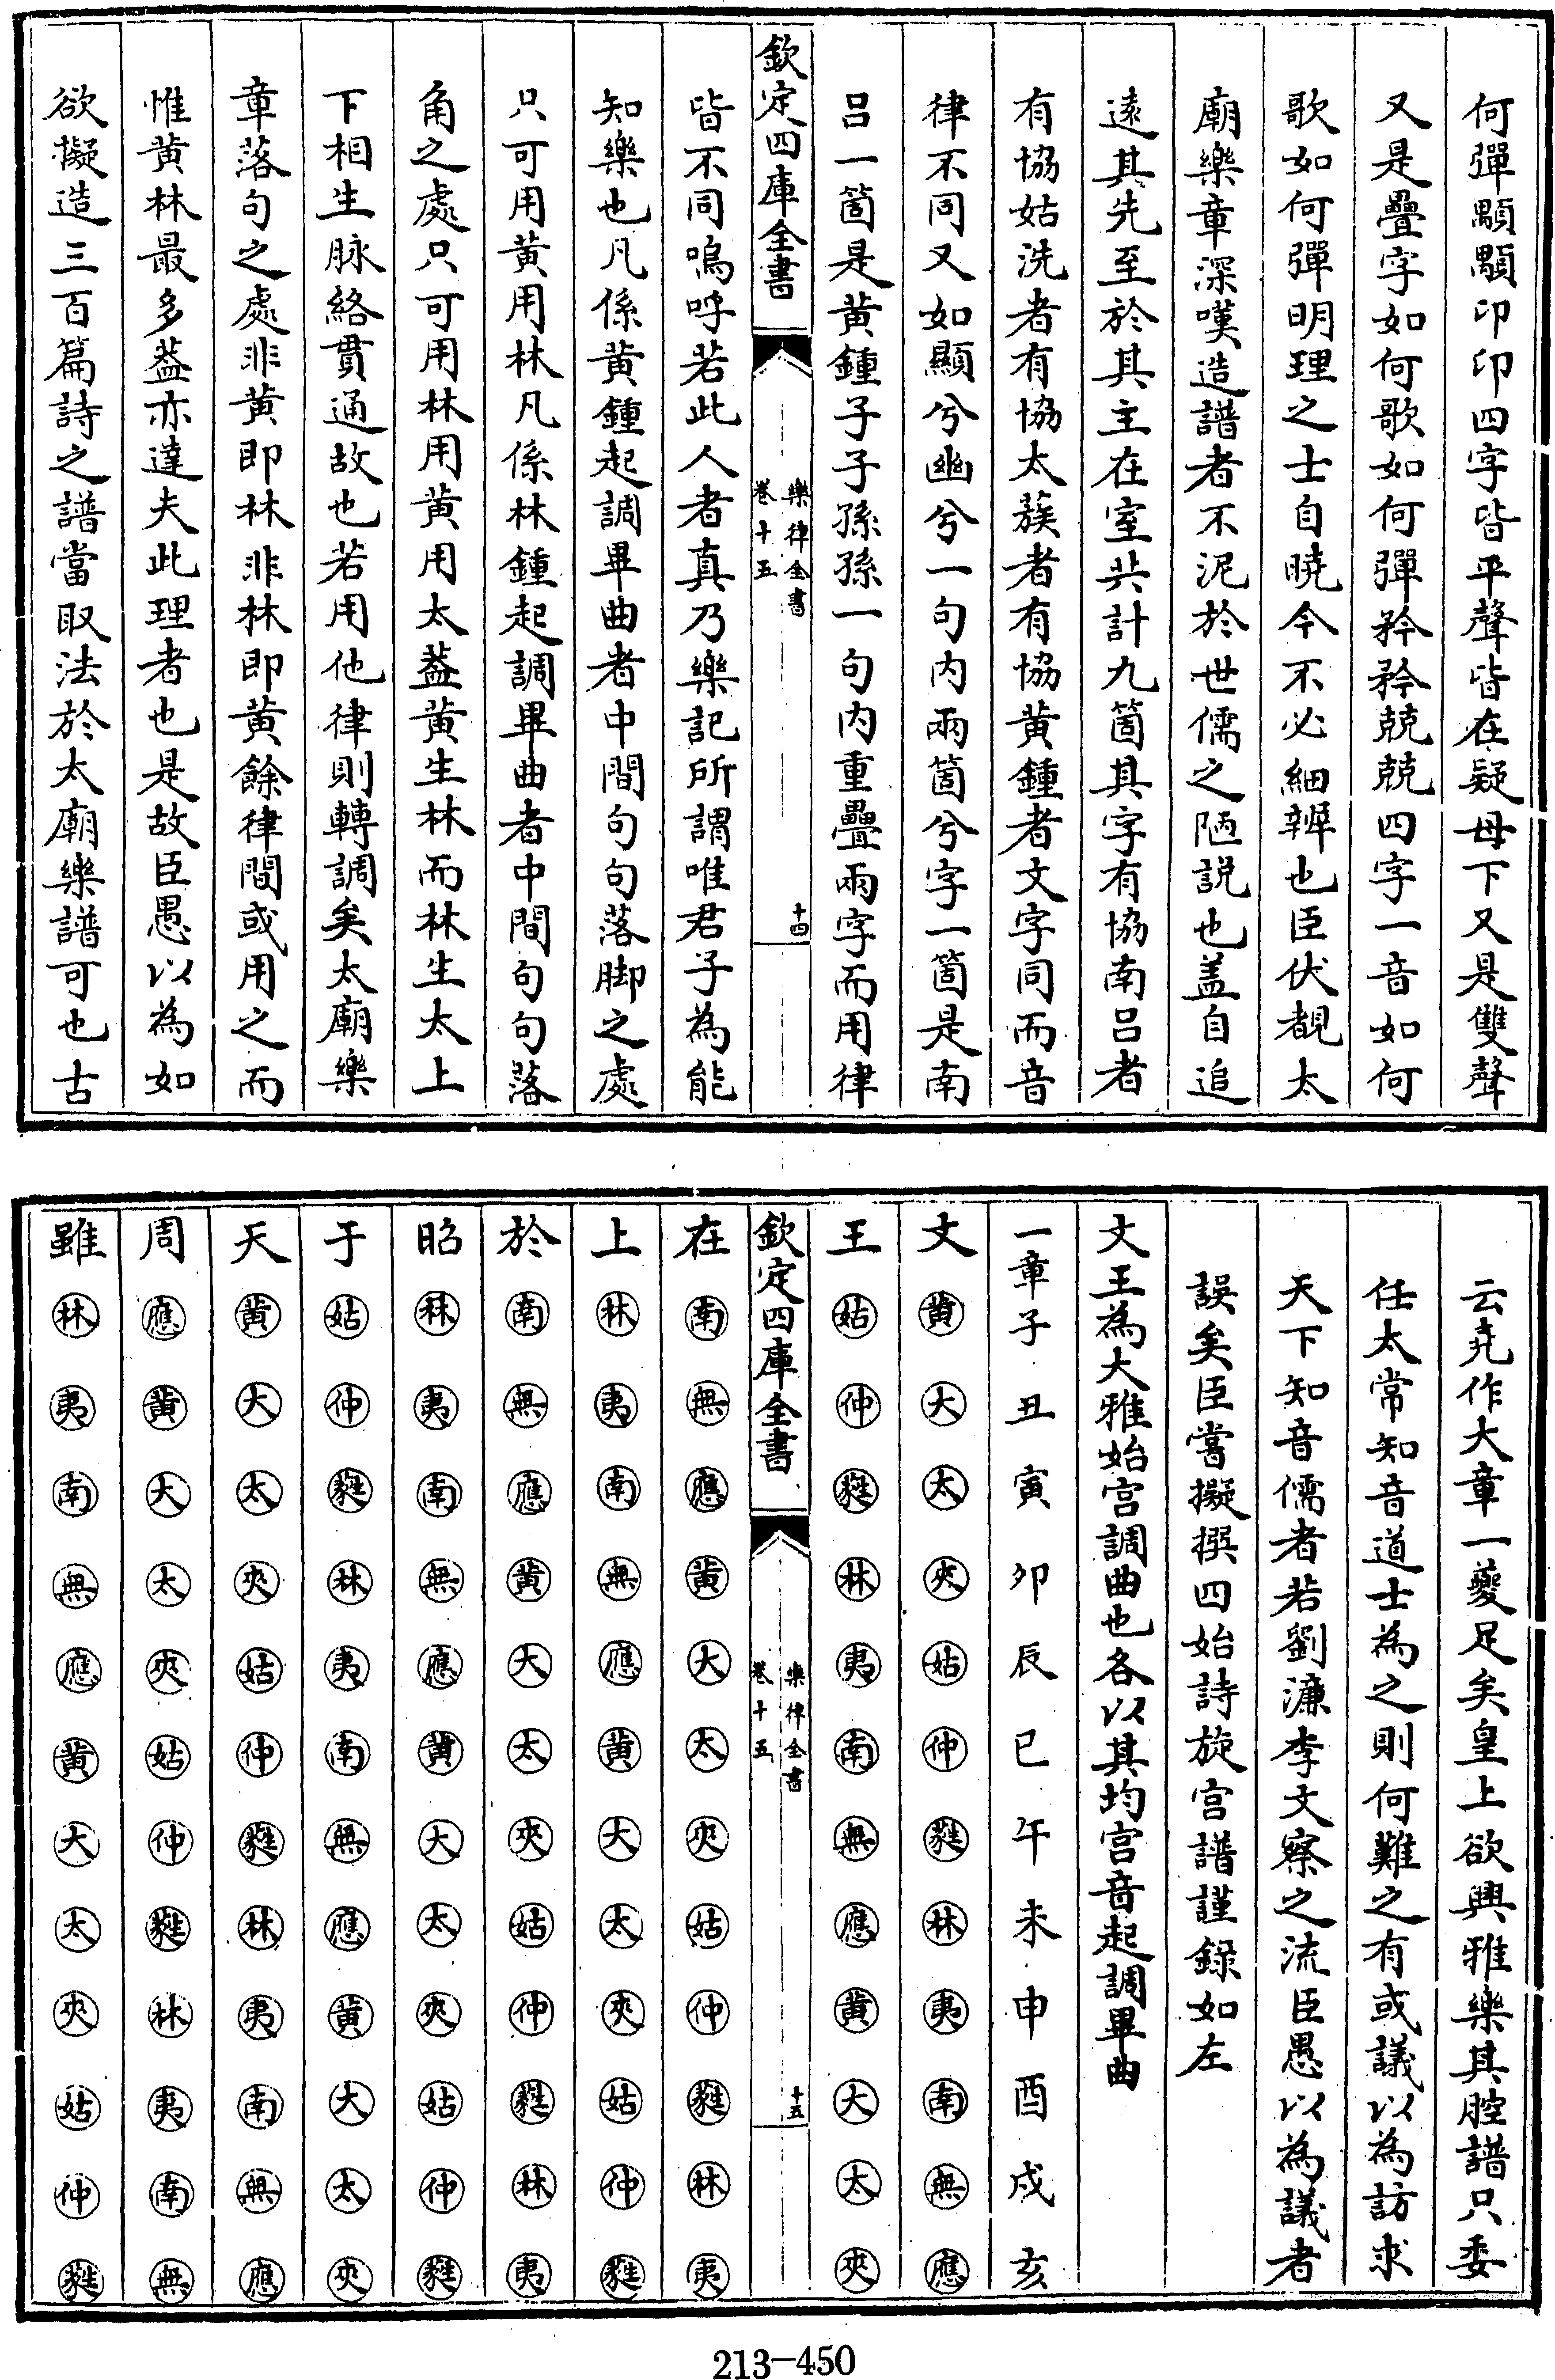 何彈顒顒卬卬四字皆平聲皆在疑母下又是雙聲
又是疊字如何歌如何彈矜矜兢兢四字一音如何
歌如何彈明理之士自曉今不必細辨也臣伏覩太
廟樂章深嘆造譜者不泥於世儒之陋説也盖自追
遠其先至於其主在室共計九箇其字有協南吕者
有協姑洗者有協太蔟者有協黄鍾者文字同而音
律不同又如顯兮幽兮一句内兩箇兮字一箇是南
吕一箇是黄鍾子子孫孫一句内重疊兩字而用律
欽定四庫全書
樂律全書
卷十五
十四
皆不同嗚呼若此人者真乃樂記所謂唯君子為能
知樂也凡係黄鍾起調畢曲者中間句句落脚之處
只可用黄用林凡係林鍾起調畢曲者中間句句落
角之處只可用林用黄用太葢黄生林而林生太上
下相生脉絡貫通故也若用他律則轉調矣太廟樂
章落句之處非黄即林非林即黄餘律間或用之而
惟黄林最多葢亦達夫此理者也是故臣愚以為如
欲擬造三百篇詩之譜當取法於太廟樂譜可也古
云尭作大章一夔足矣皇上欲興雅樂其腔譜只委
任太常知音道士為之則何難之有或議以為訪求
天下知音儒者若劉濂李文察之流臣愚以為議者
誤矣臣嘗擬撰四始詩旋宫譜謹録如左
文王為大雅始宫調曲也各以其均宫音起調畢曲
一章子丑寅卯辰巳午未申酉戌亥
文黄大太夾姑仲蕤林夷南無應
王姑仲蕤林夷南無應黄大太夾
欽定四庫全書
樂律全書
卷十五
十五
在南無應黄大太夾姑仲蕤林夷
上林夷南無應黄大太夾姑仲蕤
於南無應黄大太夾姑仲蕤林夷
昭林夷南無應黄大太夾姑仲蕤
于姑仲蕤林夷南無應黄大太夾
天黄大太夾姑仲蕤林夷南無應
周應黄大太夾姑仲蕤林夷南無
雖林夷南無應黄大太夾姑仲蕤
213-450